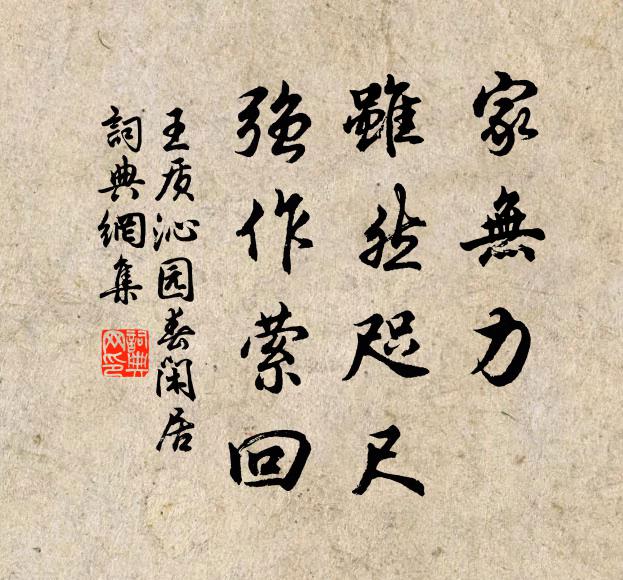 家無力
雖然咫尺
強作縈回
王质沁园春閑居
詞典網集
詞典網印